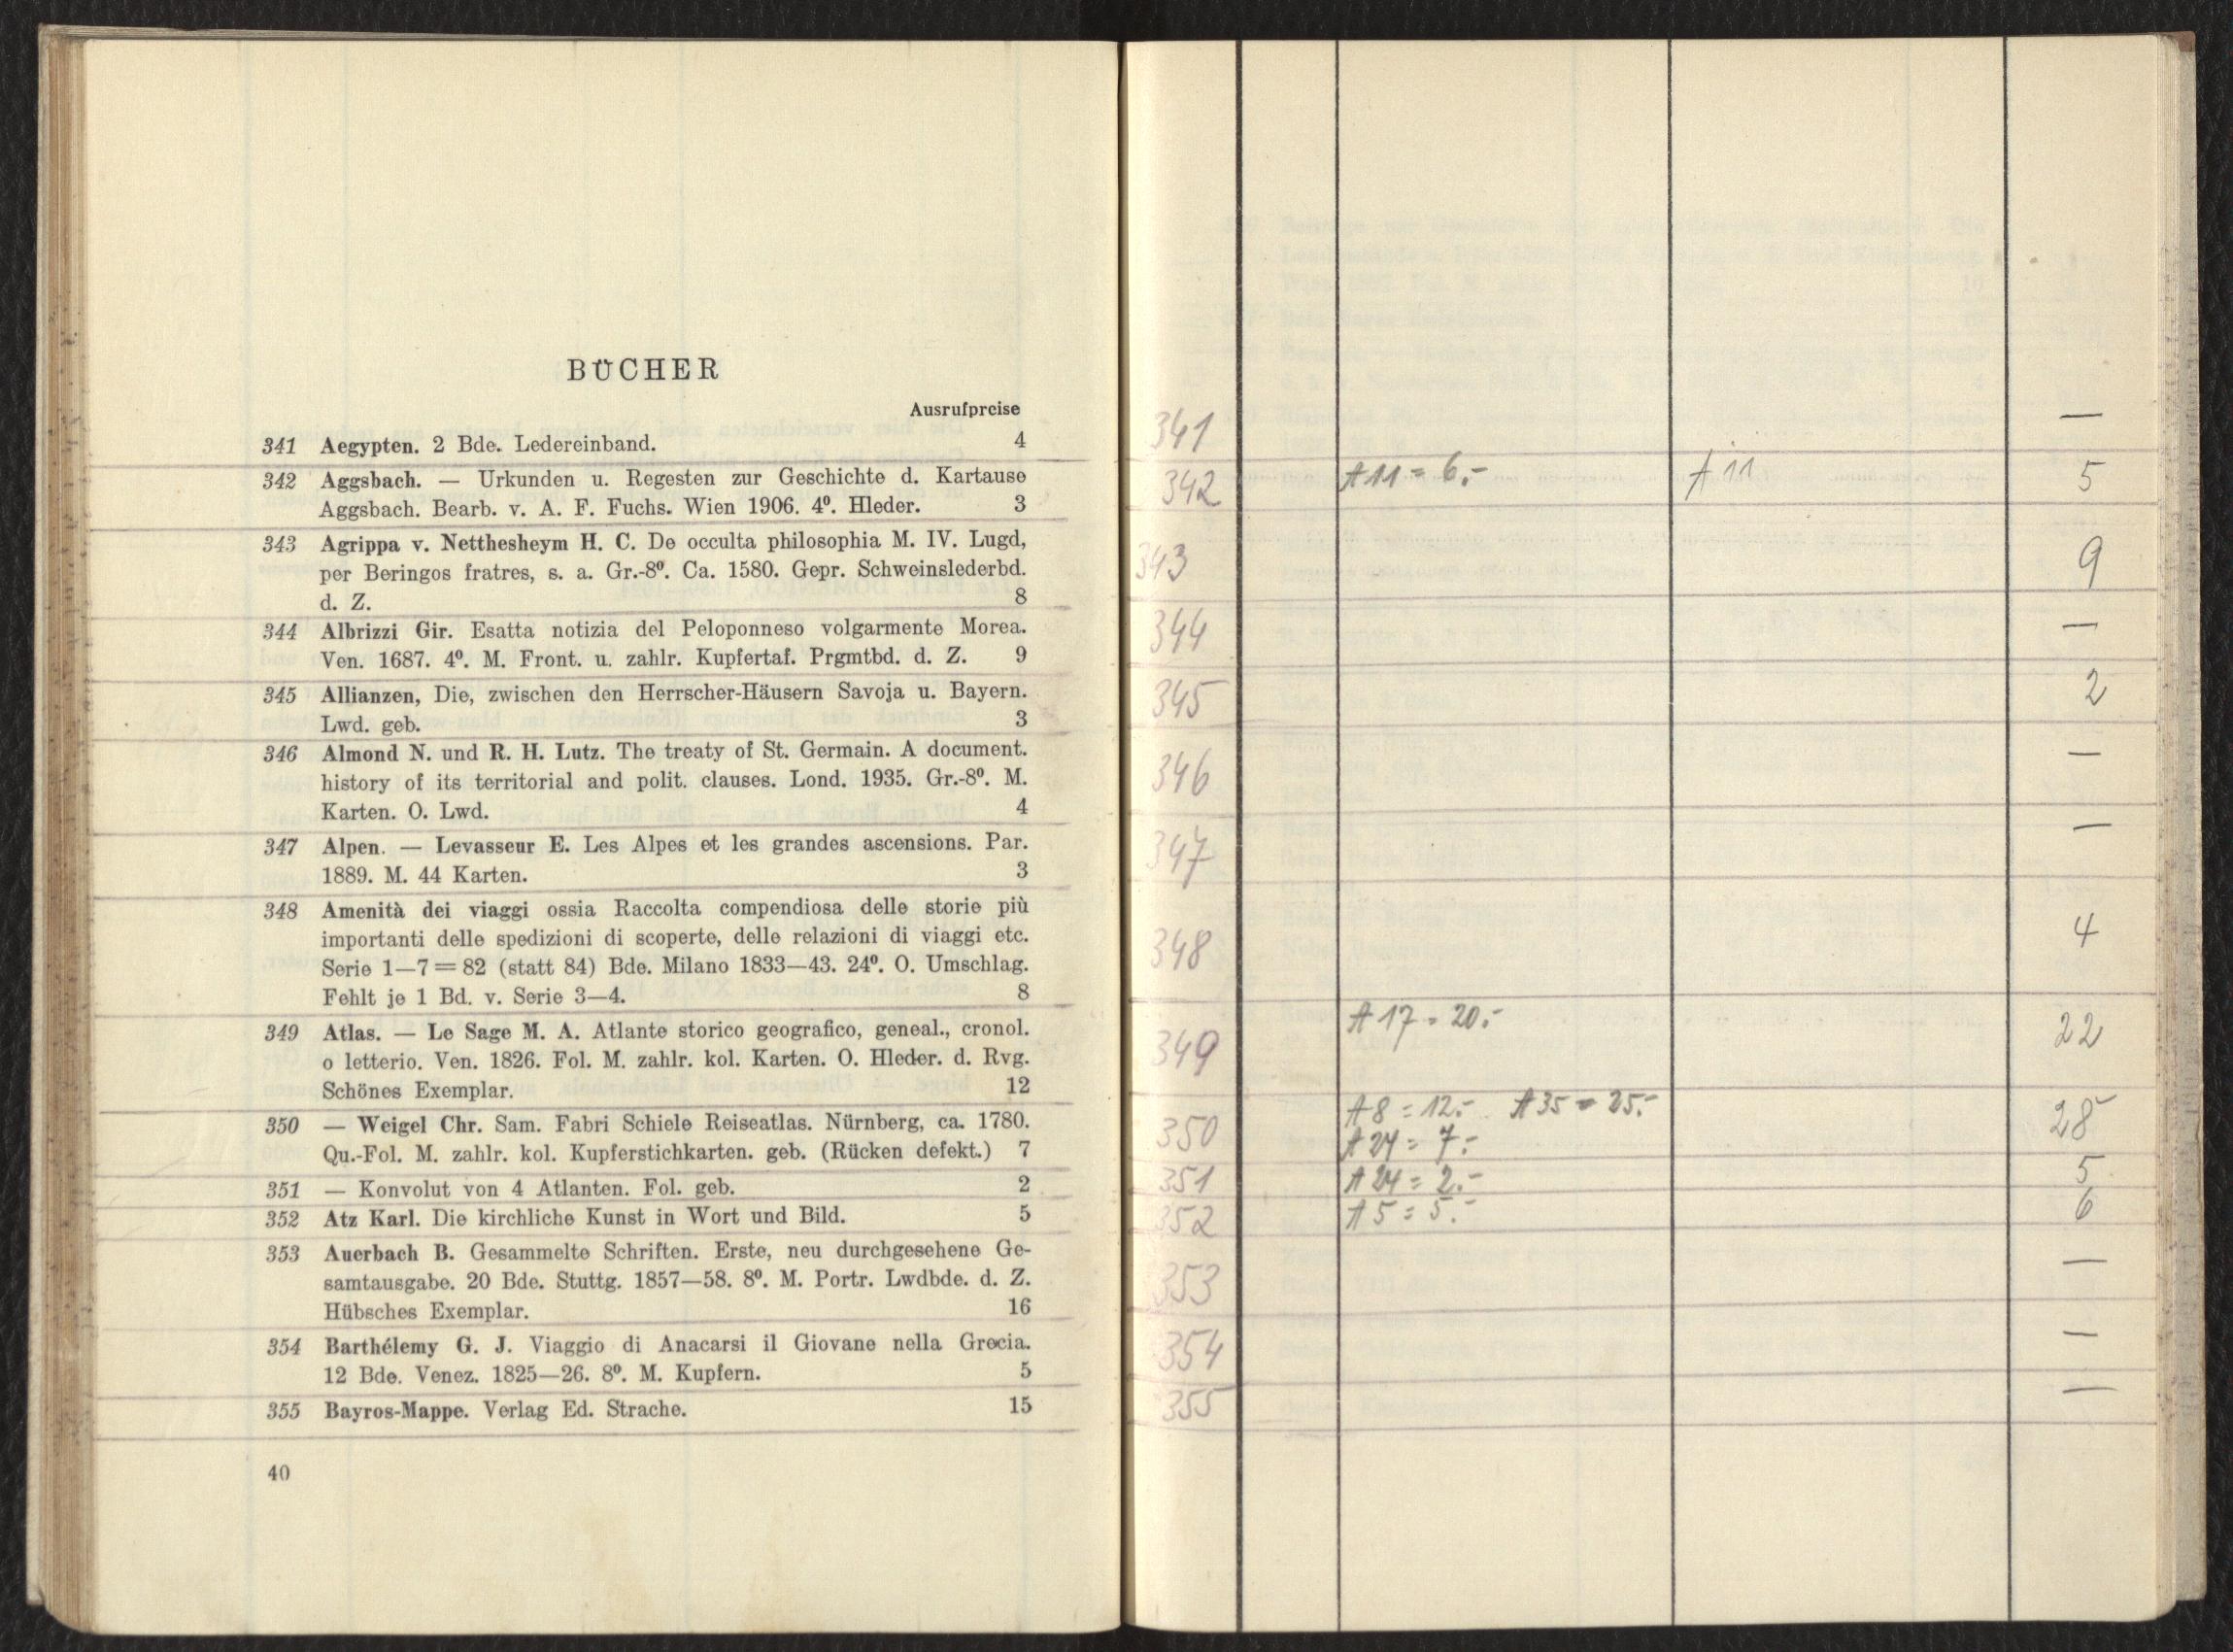 BÜCHER
Ausrufpreise
341 Aegypten. 2 Bde. Ledereinband. 4
342 Aggsbach. — Urkunden u. Regesten zur Geschichte d. Kartause
Aggsbach. Bearb. v. A. F. Fuchs. Wien 1906. 4⁰. Hleder. 3
343 Agrippa v. Netthesheym H. C. De occulta philosophia M. IV. Lugd,
per Beringos fratres, s. a. Gr.-8⁰. Ca. 1580. Gepr. Schweinslederbd.
d. Z. 8
344 Albrizzi Gir. Esatta notizia del Peloponneso volgarmente Morea.
Ven. 1687. 4⁰. M. Front. u. zahlr. Kupfertaf. Prgmtbd. d. Z. 9
345 Allianzen, Die, zwischen den Herrscher-Häusern Savoja u. Bayern.
Lwd. geb. 3
346 Almond N. und R. H. Lutz. The treaty of St. Germain. A document.
history of its territorial and polit. clauses. Lond. 1935. Gr.-8⁰. M.
Karten. O. Lwd. 4
347 Alpen. — Levasseur E. Les Alpes et les grandes ascensions. Par.
1889. M. 44 Karten. 3
348 Amenità dei viaggi ossia Raccolta compendiosa delle storie più
importanti delle spedizioni di scoperte, delle relazioni di viaggi etc.
Serie 1—7 = 82 (statt 84) Bde. Milano 1833—43. 24⁰. O. Umschlag.
Fehlt je 1 Bd. v. Serie 3—4. 8
349 Atlas. — Le Sage M. A. Atlante storico geografico, geneal., cronol.
o letterio. Ven. 1826. Fol. M. zahlr. kol. Karten. O. Hleder. d. Rvg.
Schönes Exemplar. 12
350 — Weigel Chr. Sam. Fabri Schiele Reiseatlas. Nürnberg, ca. 1780.
Qu.-Fol. M. zahlr. kol. Kupferstichkarten. geb. (Rücken defekt.) 7
351 — Konvolut von 4 Atlanten. Fol. geb. 2
352 Atz Karl. Die kirchliche Kunst in Wort und Bild. 5
353 Auerbach B. Gesammelte Schriften. Erste, neu durchgesehene Ge-
samtausgabe. 20 Bde. Stuttg. 1857—58. 8⁰. M. Portr. Lwdbde. d. Z.
Hübsches Exemplar. 16
354 Barthélemy G. J. Viaggio di Anacarsi il Giovane nella Grecia.
12 Bde. Venez. 1825—26. 8⁰. M. Kupfern. 5
355 Bayros-Mappe. Verlag Ed. Strache. 15
40
341 —
342 A 11 = 6.- A 11 5
343 9
344 —
345 2
346 —
347 —
348 4
349 A 17 = 20.- 22
350 A 8 = 12.- A 35 = 25.- 28
A 24 = 7.-
351 A 24 = 2.- 5
352 A 5 = 5.- 6
353 —
354 —
355 —